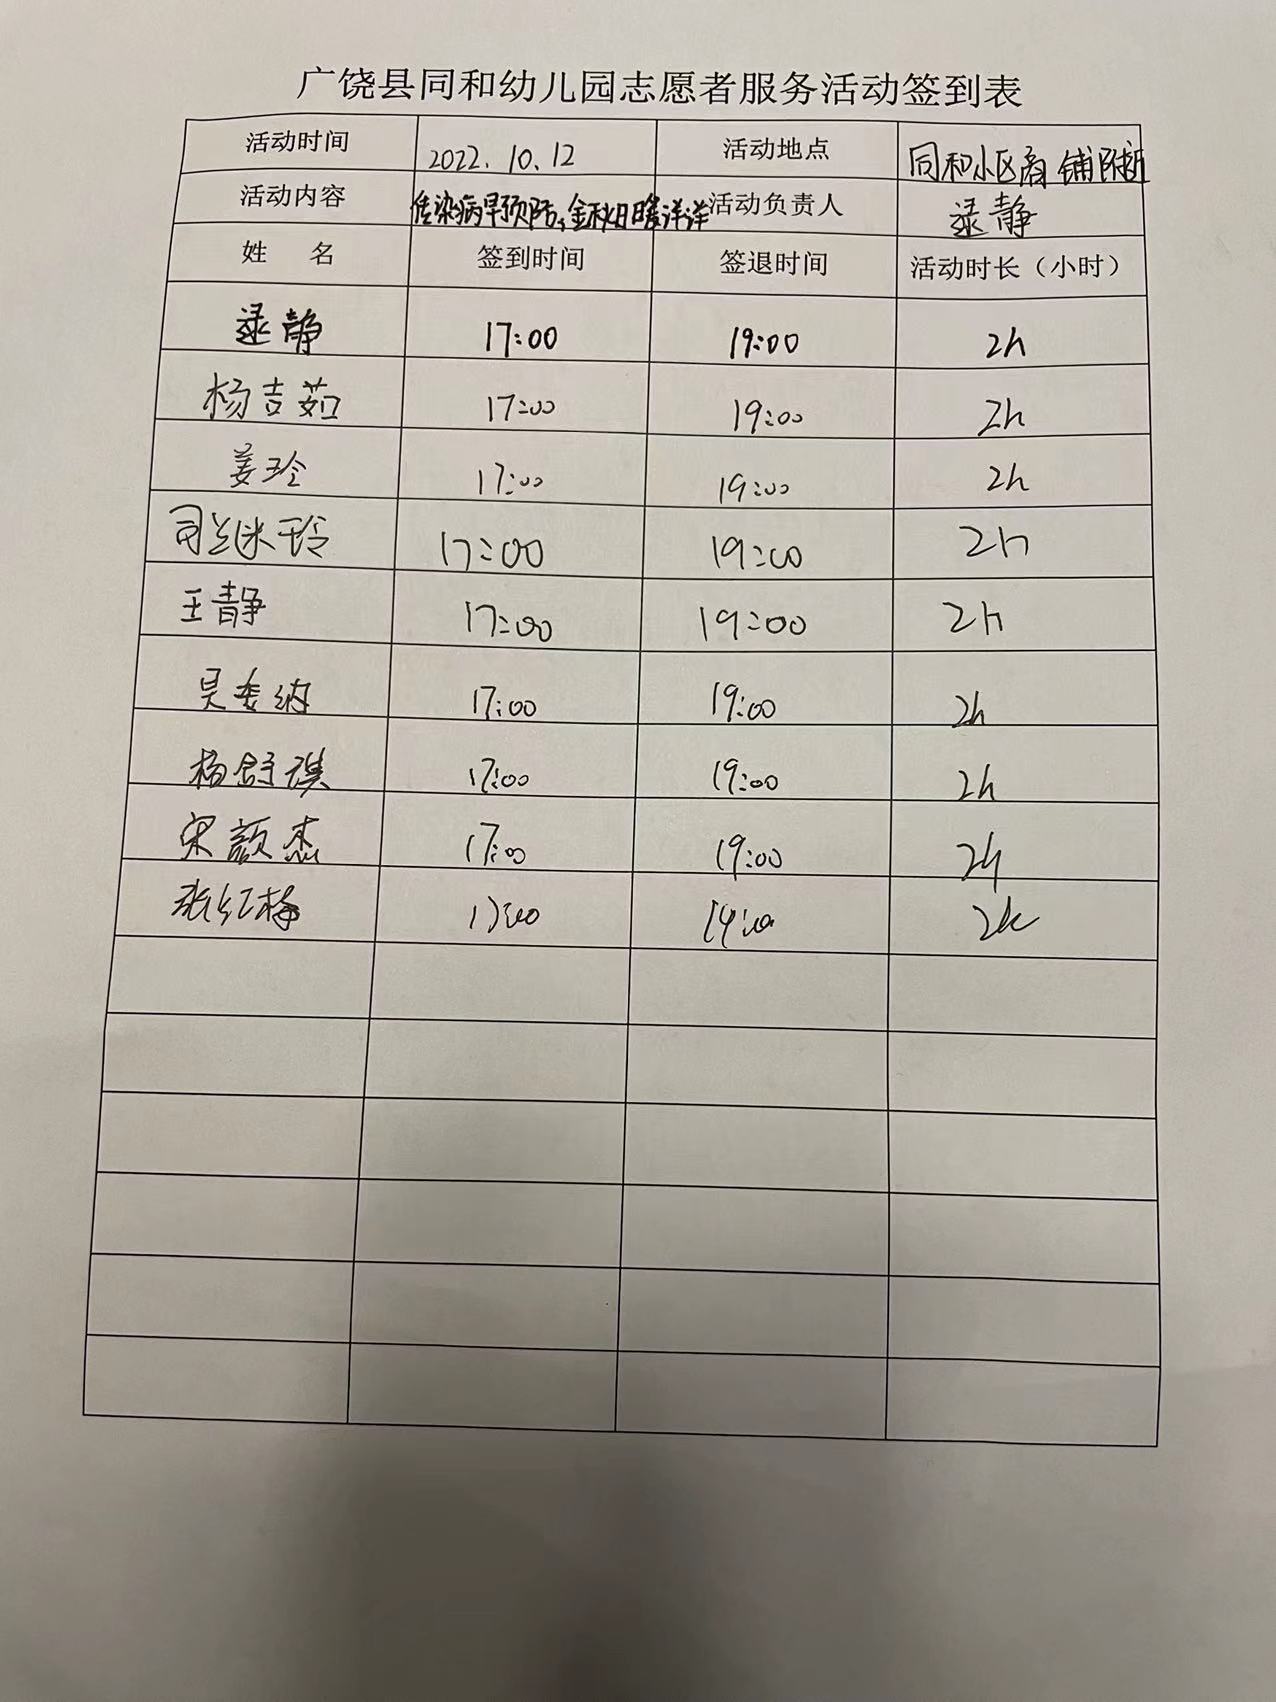 广饶县同和幼儿园志愿者服务活动签到表
活动时间 2022.10.12 活动地点 同和小区商铺附近
活动内容 传染病早预防,金秋日暖洋洋 活动负责人 逯静
姓 名 签到时间 签退时间 活动时长（小时）
逯静 17:00 19:00 2h
杨吉茹 17:00 19:00 2h
姜玲 17:00 19:00 2h
司兰 玲 17:00 19:00 2h
王静 17:00 19:00 2h
吴 纳 17:00 19:00 2h
杨舒琪 17:00 19:00 2h
宋颜杰 17:00 19:00 2h
张红梅 17:00 19:00 2h